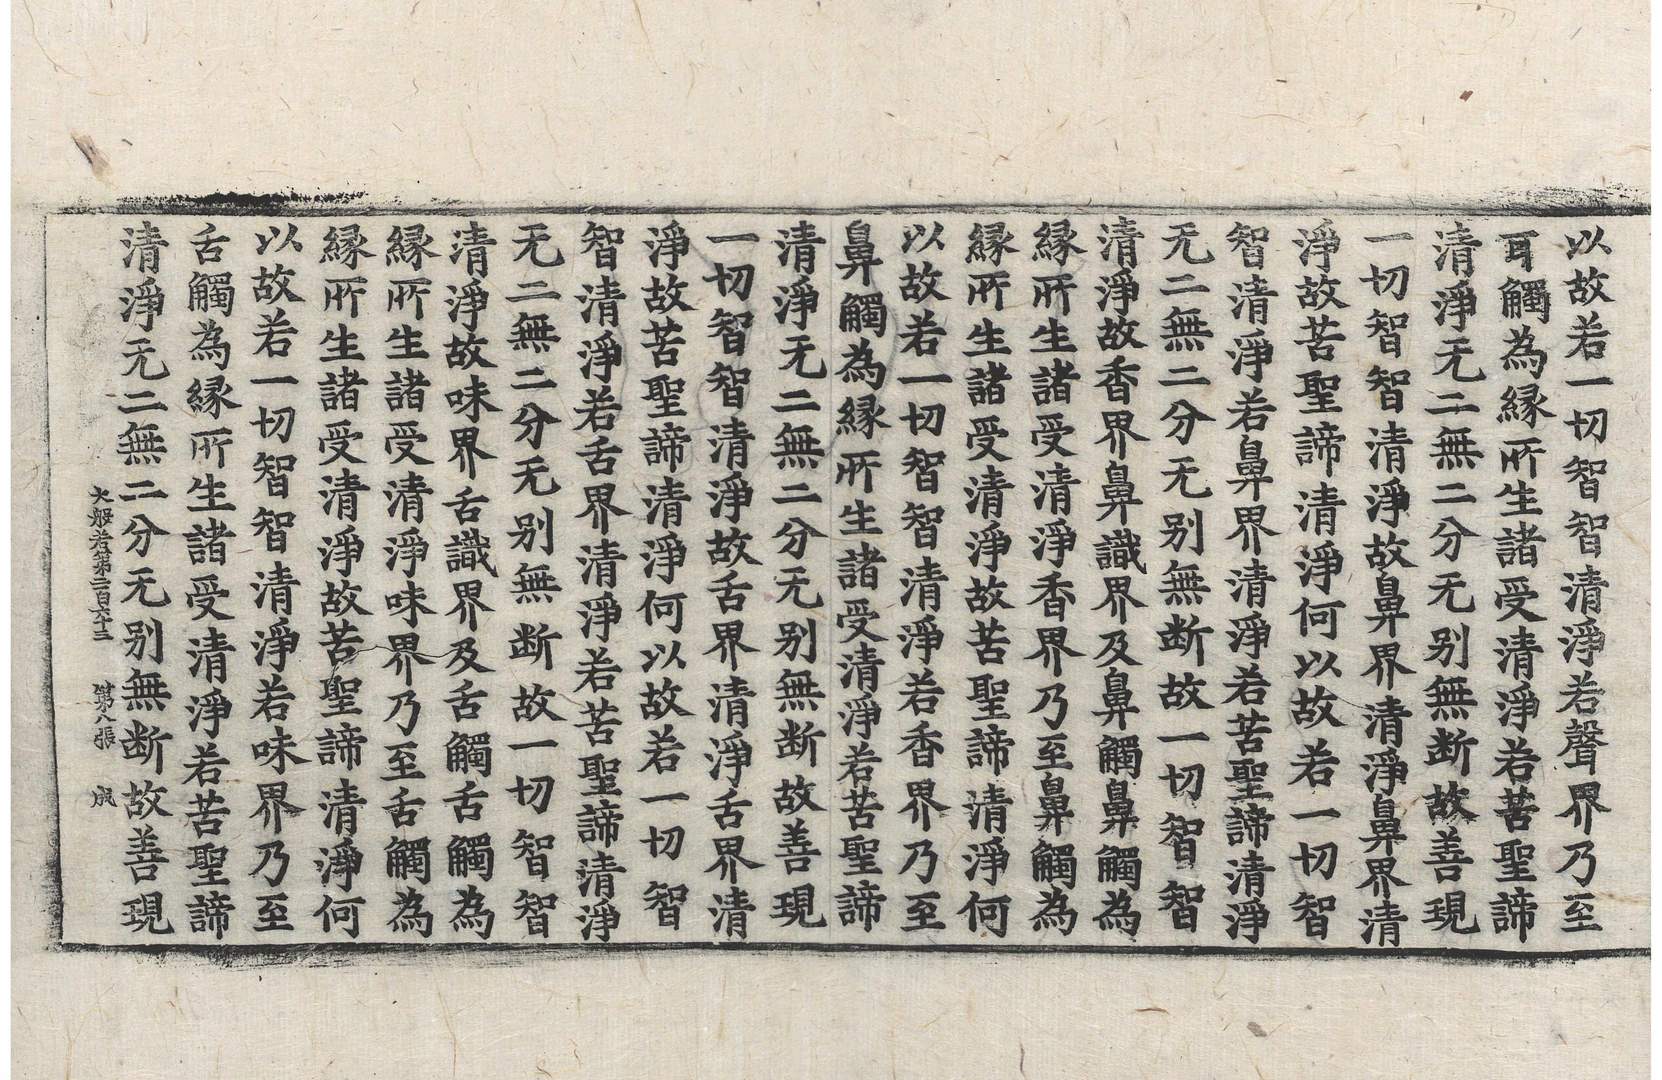 以故若一切智智清淨若聲界乃至
耳觸為縁所生諸受清淨若苦聖諦
清淨无二無二分无别無断故善現
一切智智清淨故鼻界清淨鼻界清
淨故苦聖諦清淨何以故若一切智
智清淨若鼻界清淨若苦聖諦清淨
无二無二分无别無断故一切智智
清淨故香界鼻識界及鼻觸鼻觸為
縁所生諸受清淨香界乃至鼻觸為
縁所生諸受清淨故苦聖諦清淨何
以故若一切智智清淨若香界乃至
鼻觸為縁所生諸受清淨若苦聖諦
清淨无二無二分无别無断故善現
一切智智清淨故舌界清淨舌界清
淨故苦聖諦清淨何以故若一切智
智清淨若舌界清淨若苦聖諦清淨
无二無二分无别無断故一切智智
清淨故味界舌識界及舌觸舌觸為
縁所生諸受清淨味界乃至舌觸為
縁所生諸受清淨故苦聖諦清淨何
以故若一切智智清淨若味界乃至
舌觸為縁所生諸受清淨若苦聖諦
清淨无二無二分无别無断故善現
大般若第二百六十三 第八張 成